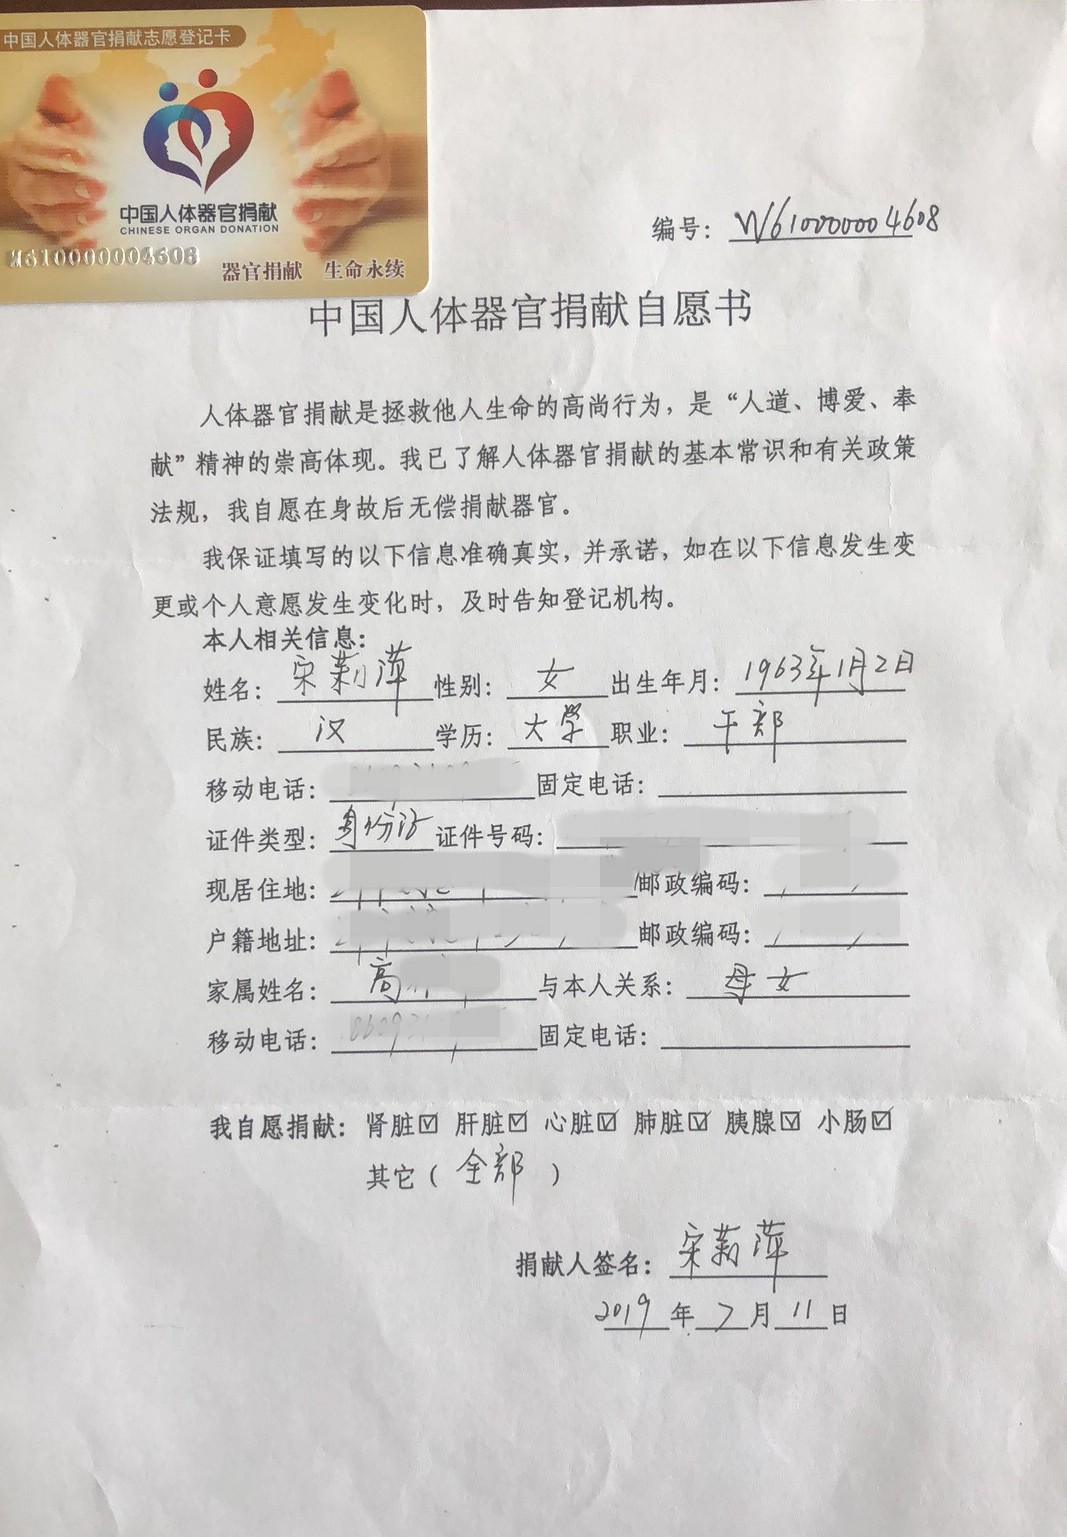 中国人体器官捐献志愿登记卡
中国人体器官捐献
CHINESE ORGAN DONATION
W610000004608
器官捐献 生命永续
编号：W610000004608
中国人体器官捐献自愿书
人体器官捐献是拯救他人生命的高尚行为，是“人道、博爱、奉
献”精神的崇高体现。我已了解人体器官捐献的基本常识和有关政策
法规，我自愿在身故后无偿捐献器官。
我保证填写的以下信息准确真实，并承诺，如在以下信息发生变
更或个人意愿发生变化时，及时告知登记机构。
本人相关信息：
姓名：宋莉萍 性别：女 出生年月：1963年1月2日
民族：汉 学历：大学 职业：干部
移动电话： 固定电话：
证件类型：身份证 证件号码：
现居住地： 邮政编码：
户籍地址： 邮政编码：
家属姓名：高 与本人关系：母女
移动电话： 固定电话：
我自愿捐献：肾脏☑ 肝脏☑ 心脏☑ 肺脏☑ 胰腺☑ 小肠☑
其它（全部）
捐献人签名：宋莉萍
2019年7月11日